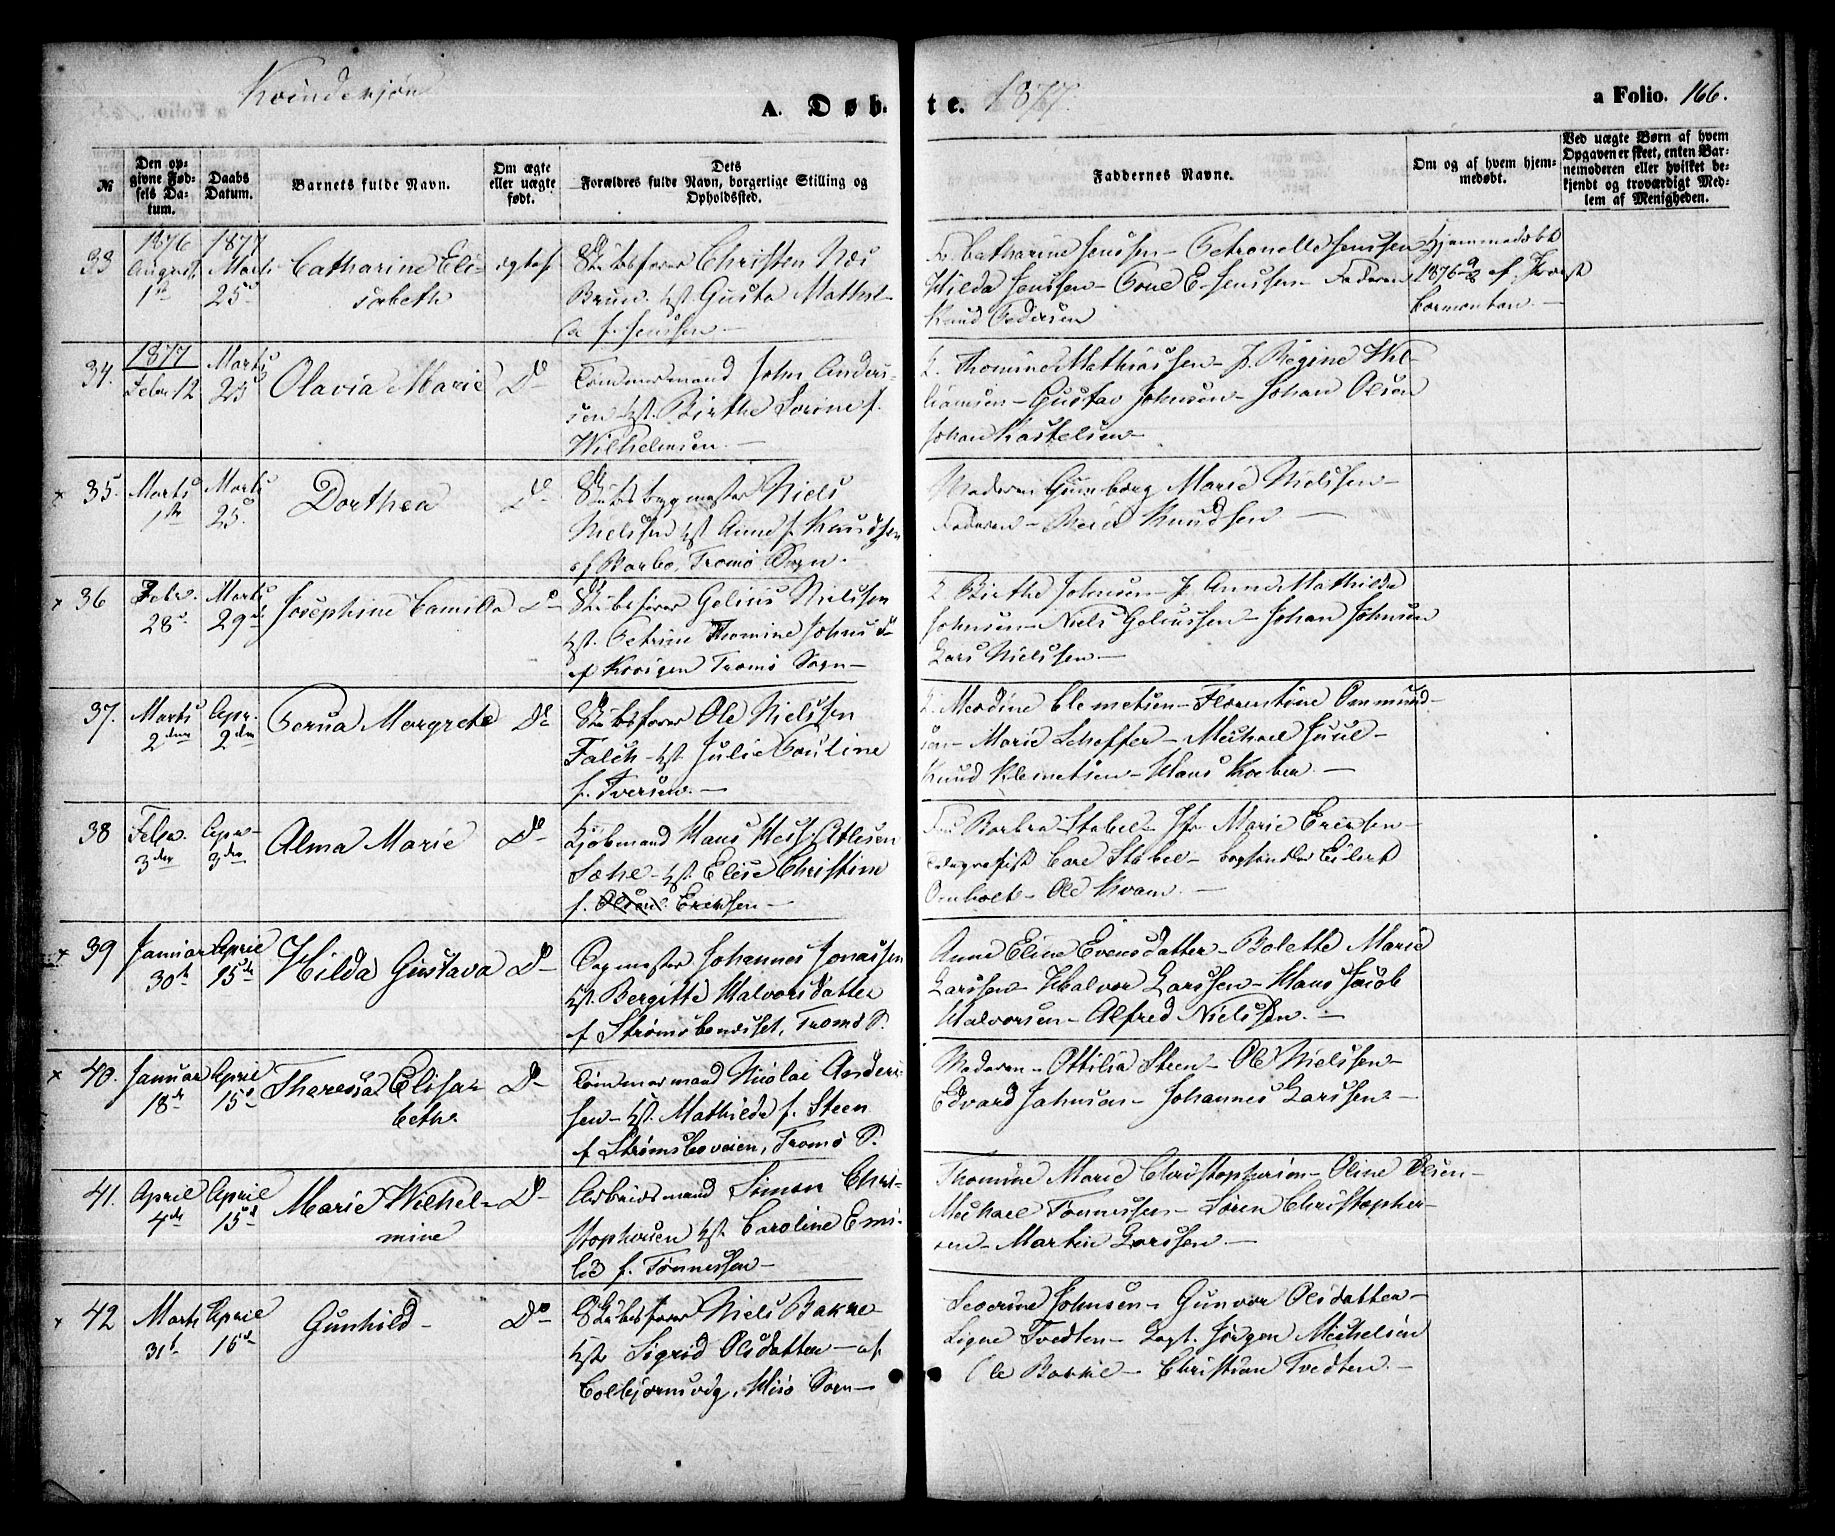 Kvindekjøn
A. Døbte. 1877.
a Folio. 166.
№
Den opgivne Fødsels Datum.
Daabs Datum.
Barnets fulde Navn.
Om ægte eller uægte født.
Dets Forældres fulde Navn, borgerlige Stilling og Opholdssted.
Faddernes Navne.
Om og af hvem hjemmedøbt.
Ved uægte Børn af hvem Opgaven er skeet, enten Barnemoderen eller hvilket bekjendt og troværdigt Medlem af Menigheden.
33
1876 August 1ste
1877 Marts 25d
Catharine Elisabeth
ægtef
Skibsfører Christen Næs
Bruun Hst Gusta Mathil-
da f. Jenssen
Fr. Catharine Jenssen - Petronelle Jenssen
Hilda Jenssen - Poul E. Jenssen - Faderen
Knud Pedersen
Hjemmedøbt
1876 af Provst
34.
1877 Febr 12
Marts 25d
Olavia Marie
Do
Tømmermand John Anders-
sen - Hst. Birthe Sorine f.
Wilhelmsen
Thomine Mathiassen - J. Regine Wil-
liamsen - Gustav Johnsen - Johan Olsen
Johan Kastelsen
x 35.
Marts 1ste
Marts 25.
Dorthea
Do
Skibsbygmester Niels
Nielsen Hst Anne f. Knudsen
af Barbo, Tromø Sogn.
Moderen Gunborg Marie Nielssen -
Faderen - Knudsen
x 36
Febr. 28d
Marts 29d
Josephine Camilla
Do
Skibsfører Gelius Nielssen
Hst. Petrine Thomine Johnsd
af Tromø Sogn
Birthe Johnsen - J. Anne Mathilde
Johnsen - Niels Geliussen - Johan Johnsen
Lars Nielssen
37.
Marts 2den
Apr. 2den
Margrete
Do
Skibsfører Ole Nielssen
Falch - Hst Julie Pauline
f. Iversen
Merdine Clemetsen - Florentine Ommund-
sen - Marie Scheffer - Michael Juul -
Knud Klemetsen - Hans
38
Febr. 3die
Apr. 3die
Alma Marie
Do
Kjøbmand Hans Atlesen
Sæhl - Hst. Elise Christine
f. Olsen Eriksen
Fru Barbra Stabel - Jfr. Marie Eriksen -
Telegrafist Carl Stabel - Eilert
Omholt - Ole Kvam
x 39
Januar 30te
April 15de
Hilda Gustava
Do
Johannes Jonassen
Hst. Bergitte Halvorsdatter
af Strømsbuneset, Tromø S.
Anne Eline Evensdatter - Bolette Marie
Larssen - Halvor Larssen - Hans Jacob
Halvorsen - Alfred Nielssen
x 40.
Januar 18de
April 15d
Theresia Elisabeth
Do
Tømmermand Nicolai Anders-
sen - Hst. Mathilde f. Steen
af Strømsboveien, Tromø S.
Moderen - Ottilia Steen - Ole Nielssen -
Edvard Johnson - Johannes Larssen
41.
April 4de
April 15d
Marie Wilhelmine
Do
Arbeidsmand Simon Chri-
stophersen Hst. Caroline Emi-
lie f. Tønnessen
Thomine Marie Christophersen - Oline Olsen -
Michael Tønnessen - Søren Christopher-
sen - Martin Larssen
x 42
Marts 31te
April 16d
Gunhild
Do
Skibsfører Niels Bakke
Hst Sigrid Olsdatter - af
Colbjørnsvig, Hisø Sogn
Severine Johnsen - Gunvor Olsdatter -
Signe Tvedten - Capt. Jørgen Michelsen
Ole Bakke - Christian Tvedten.